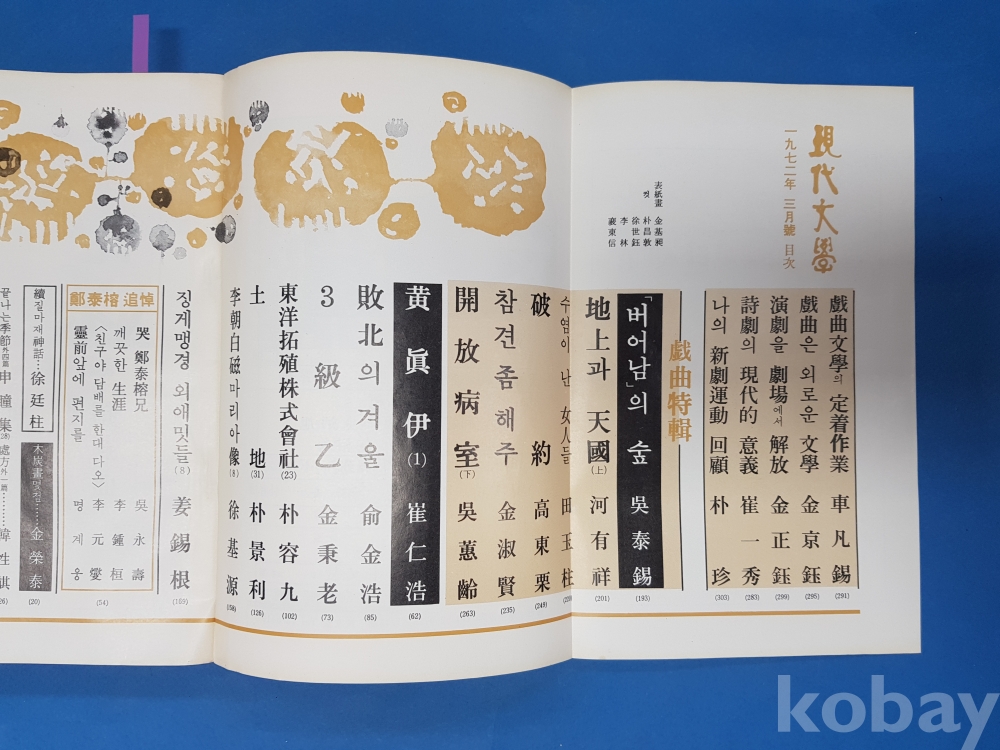 現代文學
一九七二年 三月號 目次
表紙畫 金基昶
컷 朴昌敦
徐世鈺
李林
襄東信
戱曲文學의 定着作業 車凡錫 (291)
戱曲은 외로운 文學 金京鈺 (295)
演劇을 劇場에서 解放 金正鈺 (299)
詩劇의 現代的 意義 崔一秀 (283)
나의 新劇運動 回顧 朴珍 (303)
戱曲特輯
「버어남」의 숲 吳泰錫 (193)
地上과 天國(上) 河有祥 (201)
수염이 난 女人들 田玉柱
破約 高東栗 (249)
참견좀해주 金淑賢 (235)
開放病室(下) 吳蕙齡 (263)
黄眞伊(1) 崔仁浩 (62)
敗北의 겨울 俞金浩 (85)
3級乙 金秉老 (73)
東洋拓殖株式會社(23) 朴容九 (102)
土地(31) 朴景利 (126)
李朝白磁마리아像(8) 徐基源 (158)
징게맹경 외애밋들(8) 姜錫根 (169)
鄭泰榕 追悼
哭 鄭泰榕兄 吳永壽
깨끗한 生涯 李鍾桓
〈친구야 담배를 한대 다오〉 李元燮
靈前앞에 편지를 명계웅
(54)
續질마재神話…徐廷柱
木炭畫몇점……金榮泰
(20)
끝나는季節外四篇 申瞳集(28)
處方外一篇………
kobay